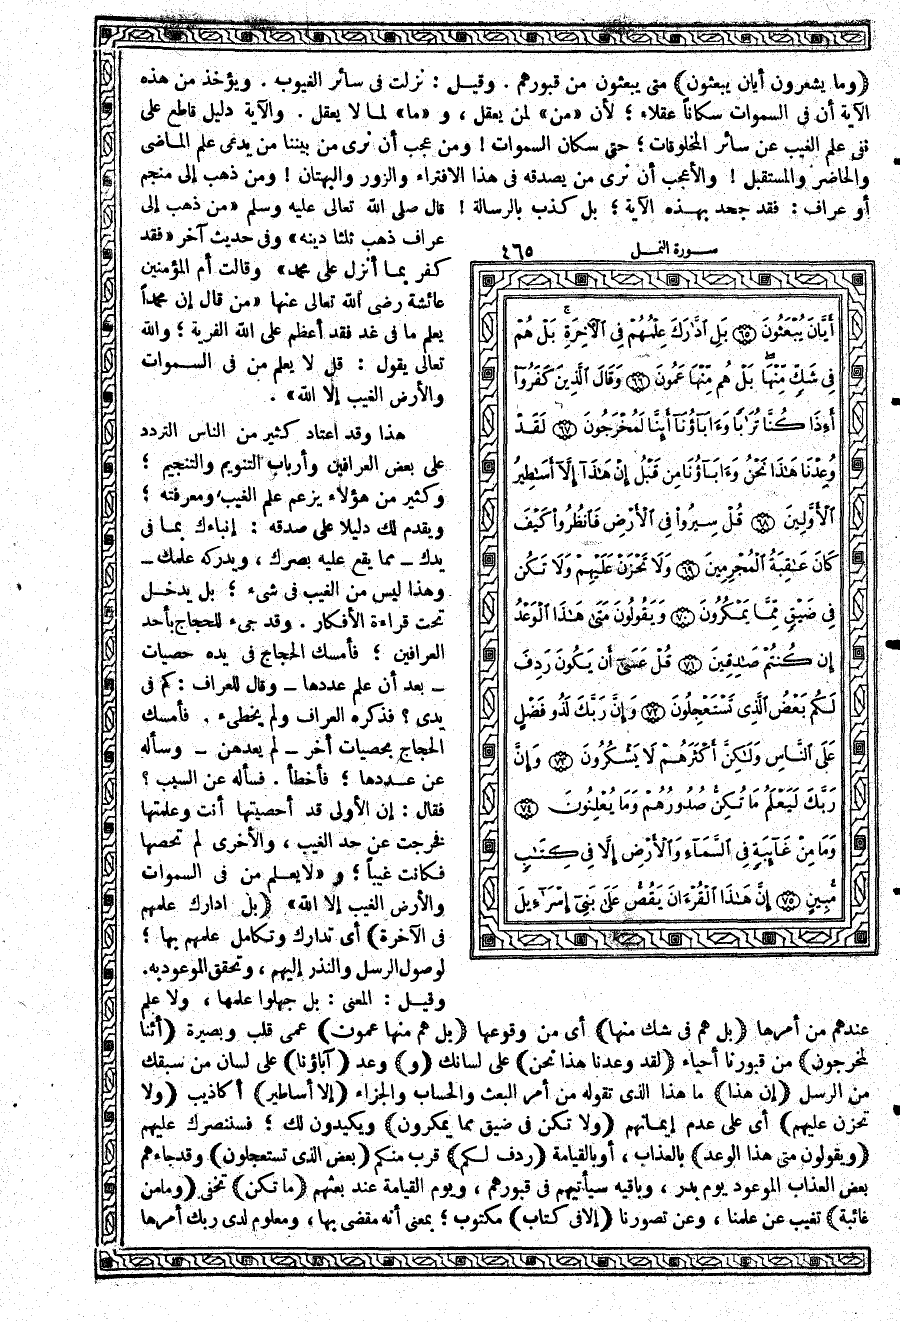 (وما يشعرون أيان يبعثون) متى يبعثون من قبورهم. وقيل: نزلت فى سائر الغيوب. ويؤخذ من هذه
الآية أن فى السموات سكاناً عقلاء؛ لأن «من» لمن يعقل، و «ما» لما لا يعقل. والآية دليل قاطع على
نفى علم الغيب عن سائر المخلوقات؛ حتى سكان السموات! ومن عجب أن نرى من بيننا من يدعى علم الماضى
والحاضر والمستقبل! والأعجب أن نرى من يصدقه فى هذا الافتراء والزور والبهتان! ومن ذهب إلى منجم
أو عراف: فقد جحد بهذه الآية؛ بل كذب بالرسالة! قال صلى الله تعالى عليه وسلم «من ذهب إلى
عراف ذهب ثلثا دينه» وفى حديث آخر «فقد
كفر بما أنزل على محمد» وقالت أم المؤمنين
عائشة رضى الله تعالى عنها «من قال إن محمداً
يعلم ما فى غد فقد أعظم على الله الفرية؛ والله
تعالى يقول: قل لا يعلم من فى السموات
والأرض الغيب إلا الله».
هذا وقد اعتاد كثير من الناس التردد
على بعض العرافين وأرباب التنويم والتنجيم؛
وكثير من هؤلاء يزعم علم الغيب ومعرفته؛
ويقدم لك دليلا على صدقه: إنباءك بما فى
يدك ــ مما يقع عليه بصرك، ويدركه علمك ــ
وهذا ليس من الغيب فى شىء؛ بل يدخل
تحت قراءة الأفكار. وقد جىء للحجاج بأحد
العرافين؛ فأمسك الحجاج فى يده حصيات
ــ بعد أن علم عددها ــ وقال للعراف: كم فى
يدى؟ فذكره العراف ولم يخطىء. فأمسك
الحجاج بحصيات أخر ــ لم يعدهن ــ وسأله
عن عددها؛ فأخطأ. فسأله عن السبب؟
فقال: إن الأولى قد أحصيتها أنت وعلمتها
فخرجت عن حد الغيب، والأخرى لم تحصها
فكانت غيباً؛ و «لايعلم من فى السموات
والأرض الغيب إلا الله» (بل ادارك علمهم
فى الآخرة) أى تدارك وتكامل علمهم بها؛
لوصول الرسل والنذر إليهم، وتحقق الموعود به.
وقيل: المعنى: بل جهلوا علمها، ولا علم
سورة النمل ٤٦٥
أَيَّانَ يُبْعَثُونَ ٦٥ بَلِ ٱدَّٰرَكَ عِلْمُهُمْ فِى ٱلْأَخِرَةِ ۚ بَلْ هُمْ
فِى شَكٍّ مِّنْهَا ۖ بَلْ هُم مِّنْهَا عَمُونَ ٦٦ وَقَالَ ٱلَّذِينَ كَفَرُوٓا۟
أَءِذَا كُنَّا تُرَٰبًا وَءَابَآؤُنَآ أَئِنَّا لَمُخْرَجُونَ ٦٧ لَقَدْ
وُعِدْنَا هَٰذَا نَحْنُ وَءَابَآؤُنَا مِن قَبْلُ إِنْ هَٰذَآ إِلَّآ أَسَٰطِيرُ
ٱلْأَوَّلِينَ ٦٨ قُلْ سِيرُوا۟ فِى ٱلْأَرْضِ فَٱنظُرُوا۟ كَيْفَ
كَانَ عَٰقِبَةُ ٱلْمُجْرِمِينَ ٦٩ وَلَا تَحْزَنْ عَلَيْهِمْ وَلَا تَكُن
فِى ضَيْقٍ مِّمَّا يَمْكُرُونَ ٧٠ وَيَقُولُونَ مَتَىٰ هَٰذَا ٱلْوَعْدُ
إِن كُنتُمْ صَٰدِقِينَ ٧١ قُلْ عَسَىٰٓ أَن يَكُونَ رَدِفَ
لَكُم بَعْضُ ٱلَّذِى تَسْتَعْجِلُونَ ٧٢ وَإِنَّ رَبَّكَ لَذُو فَضْلٍ
عَلَى ٱلنَّاسِ وَلَٰكِنَّ أَكْثَرَهُمْ لَا يَشْكُرُونَ ٧٣ وَإِنَّ
رَبَّكَ لَيَعْلَمُ مَا تُكِنُّ صُدُورُهُمْ وَمَا يُعْلِنُونَ ٧٤
وَمَا مِنْ غَآئِبَةٍ فِى ٱلسَّمَآءِ وَٱلْأَرْضِ إِلَّا فِى كِتَٰبٍ
مُّبِينٍ ٧٥ إِنَّ هَٰذَا ٱلْقُرْءَانَ يَقُصُّ عَلَىٰ بَنِىٓ إِسْرَٰٓءِيلَ
عندهم من أمرها (بل هم فى شك منها) أى من وقوعها (بل هم منها عمون) عمى قلب وبصيرة (أئنا
لمخرجون) من قبورنا أحياء (لقد وعدنا هذا نحن) على لسانك (و) وعد (آباؤنا) على لسان من سبقك
من الرسل (إن هذا) ما هذا الذى تقوله من أمر البعث والحساب والجزاء (إلا أساطير) أكاذيب (ولا
تحزن عليهم) أى على عدم إيمانهم (ولا تكن فى ضيق مما يمكرون) ويكيدون لك؛ فسننصرك عليهم
(ويقولون متى هذا الوعد) بالعذاب، أو بالقيامة (ردف لكم) قرب منكم (بعض الذى تستعجلون) وقد جاءهم
بعض العذاب الموعود يوم بدر، وباقيه سيأتيهم فى قبورهم، ويوم القيامة عند بعثهم (ما تكن) تخفى (وما من
غائبة) تغيب عن علمنا، وعن تصورنا (إلا فى كتاب) مكتوب؛ بمعنى أنه مقضى بها، ومعلوم لدى ربك أمرها